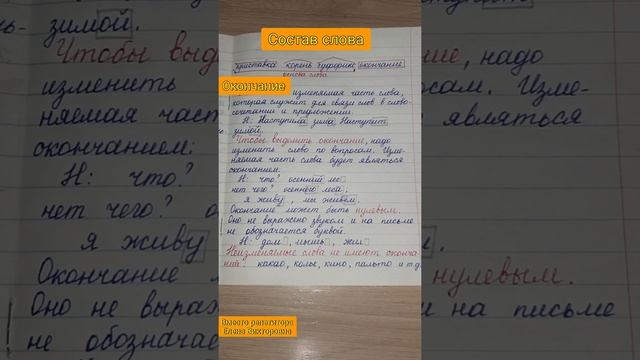 Состав слова
приставка корень суффикс окончание
основа слова
Окончание изменяемая часть слова,
которая служит для связи слов в слово-
сочетании и предложении.
Н: Наступила зима. Наступит
зимой.
Чтобы выделить окончание, надо
изменить слово по вопросам. Изме-
няемая часть слова будет являться
окончанием.
Н: что? осенний лес
нет чего? осеннего леса;
я живу, мы живем.
Окончание может быть нулевым.
Оно не выражено звуком и на письме
не обозначается буквой.
Н: дом, мышь, жил
Неизменяемые слова не имеют оконча-
ний: какао, колье, кино, пальто и т.д.
Вместо репетитора
Елена Викторовна
зимой.
Чтобы выд
ние, надо
изменить
сам. Изме-
няемая част
являться
окончанием:
Н: что?
нет чего? о
я живу
Окончание
нулевым.
Оно не выра
и на письме
не обозначае